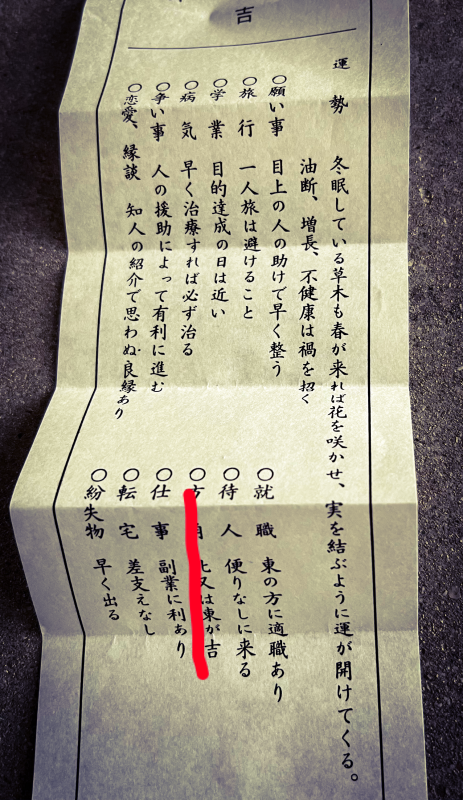 吉
運勢 冬眠している草木も春が来れば花を咲かせ、実を結ぶように運が開けてくる。
油断、増長、不健康は禍を招く
○願い事 目上の人の助けで早く整う
○旅行 一人旅は避けること
○学業 目的達成の日は近い
○病気 早く治療すれば必ず治る
○争い事 人の援助によって有利に進む
○恋愛、縁談 知人の紹介で思わぬ良縁あり
○就職 東の方に適職あり
○待人 便りなしに来る
○ 又は東が吉
○仕事 副業に利あり
○転宅 差支えなし
○紛失物 早く出る